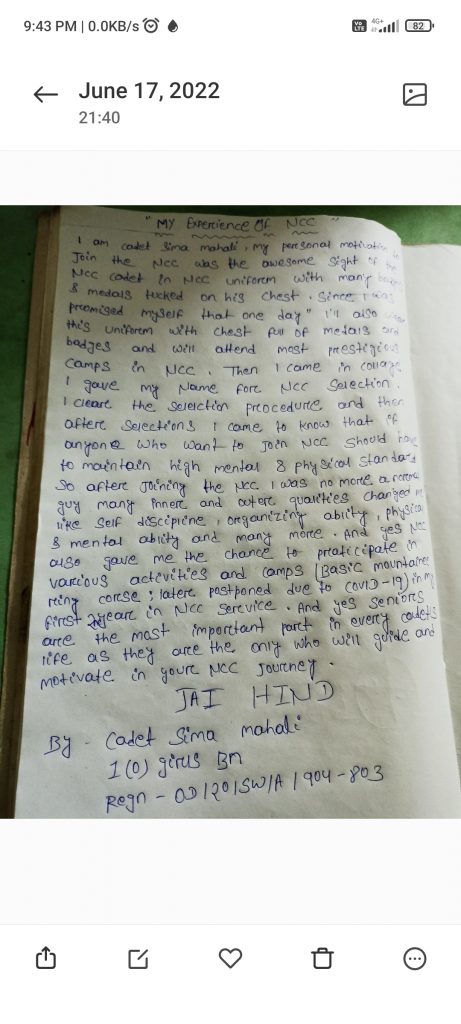 9:43 PM | 0.0KB/s
Vo LTE 4G+ 82
June 17, 2022
21:40
" MY Experience Of NCC "
I am cadet Sima mahali, My personal motivation to
Join the NCC was the awesome sight of the
NCC cadet in NCC uniforem with many
& medals tucked on his chest. Since I was
preomised myself that one day" I'll also
this uniforem with chest full of medals and
badges and will attend most prestigious
camps in NCC. Then I came in collage
I gave my Name fore NCC Selection.
I cleare the selelction procedure and then
aftere Selections I came to know that if
anyone who want to Join NCC should have
to maintain high mental & physical standard
So aftere Joining the NCC. I was no more a normal
guy many inner and outere qualities changed
like Self discipline, organizing ablity, physical
& mental ablity and many more. And yes NCC
also gave me the chance to prcaticipate in
various actevities and camps [Basic mountainee
reing corse; latere postponed due to COVID-19) in my
first year in NCC Serevice. And yes seniors
are the most important part in every cadets
life as they are the only who will guide and
motivate in youre NCC Journey.
JAI HIND
By - Cadet Sima mahali
1 (O) girls Bn
Regn - OD/20/SW/A/904-803